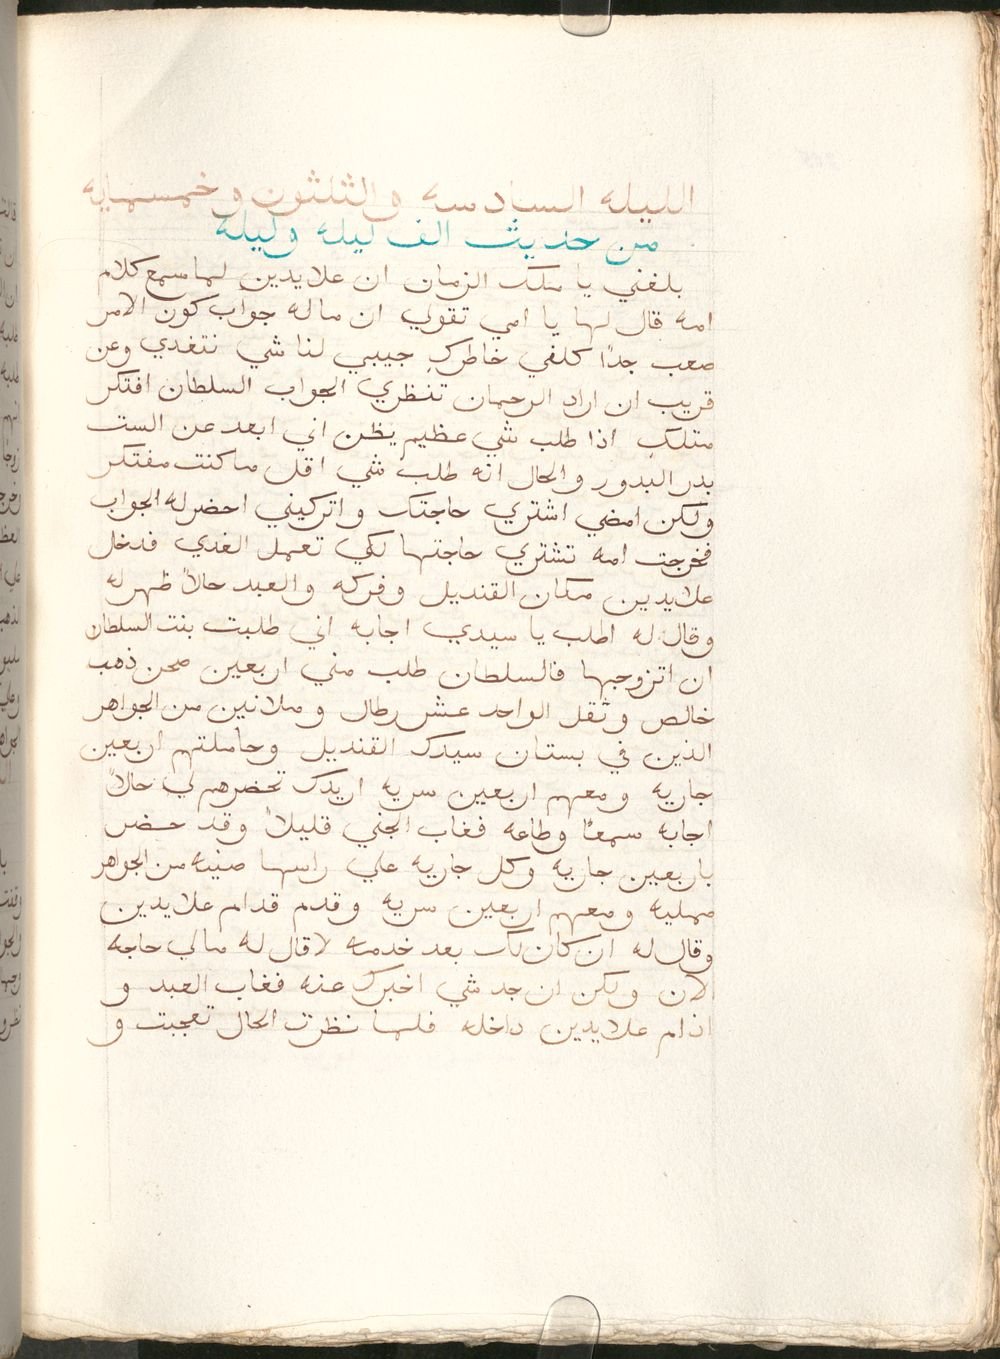 الليله السادسه والثلثون وخمسمايه
من حديث الف ليله وليله
بلغني يا ملك الزمان ان علايدين لما سمع كلام
امه قال لها يا امي تقولي ان ماله جواب كون الامر
صعب جدًا كلفي خاطركِ جيبي لنا شي نتغدي وعن
قريب ان اراد الرحمان تنظري الجواب السلطان افتكر
مثلكِ اذا طلب شي عظيم يظن اني ابعد عن الست
بدر البدور والحال انه طلب شي اقل ما كنت مفتكر
ولكن امضي اشتري حاجتك واتركيني احضر له الجواب
فخرجت امه تشتري حاجتها لكي تعمل الغدي فدخل
علايدين مكان القنديل وفركه والعبد حالاً ظهر له
وقال له اطلب يا سيدي اجابه اني طلبت بنت السلطان
ان اتزوجها فالسلطان طلب مني اربعين صحن ذهب
خالص وثقل الواحد عشر رطال وملانين من الجواهر
الذين في بستان سيدك القنديل وحاملتهم اربعين
جاريه ومعهم اربعين سريه اريدك تحضرهم لي حالاً
اجابه سمعًا وطاعه فغاب الجني قليلاً وقد حضر
باربعين جاريه وكل جاريه علي راسها صنيه من الجواهر
ممليه ومعهم اربعين سريه وقدم قدام علايدين
وقال له ان كان لك بعد خدمه لا قال له مالي حاجه
لان ولكن ان جد شي اخبرك عنه فغاب العبد و
اذ ام علايدين داخله فلما نظرت الحال تعجبت و